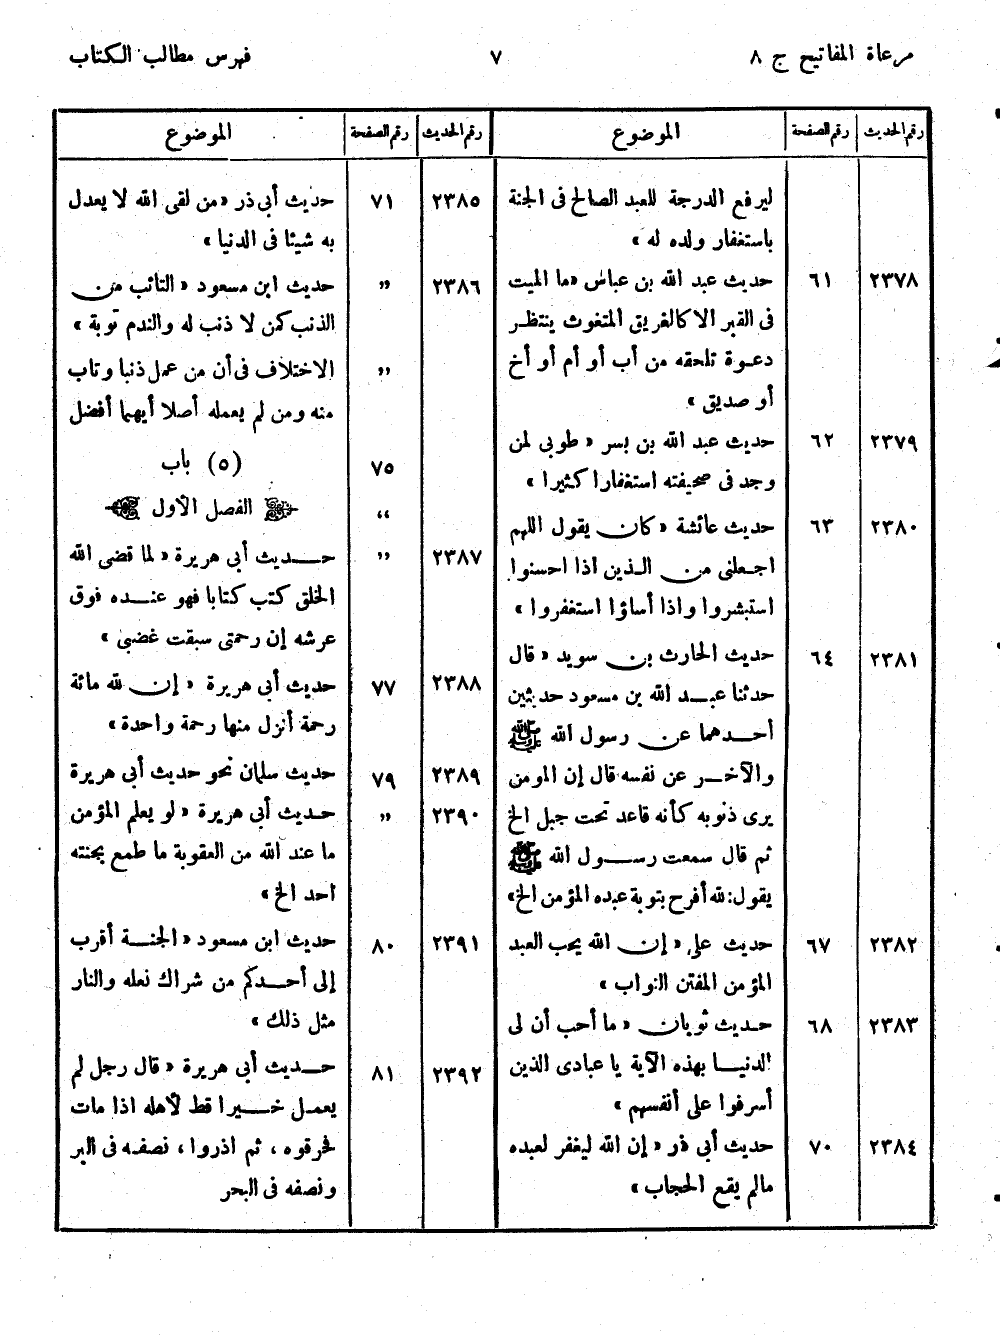 مرعاة المفاتيح ج ٨
٧
فهرس مطالب الكتاب
رقم الحديث رقم الصفحة الموضوع
ليرفع الدرجة للعبد الصالح فى الجنة
باستغفار ولده له »
٢٣٧٨ ٦١ حديث عبد الله بن عباس «ما الميت
فى القبر الا كالغريق المتغوث ينتظر
دعوة تلحقه من أب أو أم أو أخ
أو صديق »
٢٣٧٩ ٦٢ حديث عبد الله بن بسر « طوبى لمن
وجد فى صحيفته استغفارا كثيرا »
٢٣٨٠ ٦٣ حديث عائشة « كان يقول اللهم
اجعلنى من الذين اذا احسنوا
استبشروا واذا أساؤا استغفروا »
٢٣٨١ ٦٤ حديث الحارث بن سويد « قال
حدثنا عبد الله بن مسعود حديثين
أحدهما عن رسول الله ﷺ
والآخر عن نفسه قال إن المومن
يرى ذنوبه كأنه قاعد تحت جبل الخ
ثم قال سمعت رسول الله ﷺ
يقول: لله أفرح بتوبة عبده المؤمن الخ»
٢٣٨٢ ٦٧ حديث على « إن الله يحب العبد
المؤمن المفتن التواب »
٢٣٨٣ ٦٨ حديث ثوبان « ما أحب أن لى
الدنيا بهذه الآية يا عبادى الذين
أسرفوا على أنفسهم »
٢٣٨٤ ٧٠ حديث أبى ذر « إن الله ليغفر لعبده
مالم يقع الحجاب »
رقم الحديث رقم الصفحة الموضوع
٢٣٨٥ ٧١ حديث أبى ذر «من لقى الله لا يعدل
به شيئا فى الدنيا »
٢٣٨٦ ,, حديث ابن مسعود « التائب من
الذنب كمن لا ذنب له والندم توبة »
,, الاختلاف فى أن من عمل ذنبا وتاب
منه ومن لم يعمله أصلا أيهما أفضل
٧٥ (٥) باب
,, الفصل الأول
٢٣٨٧ ,, حديث أبى هريرة « لما قضى الله
الخلق كتب كتابا فهو عنده فوق
عرشه إن رحمتى سبقت غضبى »
٢٣٨٨ ٧٧ حديث أبى هريرة « إن لله مائة
رحمة أنزل منها رحمة واحدة »
٢٣٨٩ ٧٩ حديث سلمان نحو حديث أبى هريرة
٢٣٩٠ ,, حديث أبى هريرة « لو يعلم المؤمن
ما عند الله من العقوبة ما طمع بجنته
احد الخ »
٢٣٩١ ٨٠ حديث ابن مسعود « الجنة أقرب
إلى أحدكم من شراك نعله والنار
مثل ذلك »
٢٣٩٢ ٨١ حديث أبى هريرة « قال رجل لم
يعمل خيرا قط لأهله اذا مات
فحرقوه ، ثم اذروا ، نصفه فى البر
ونصفه فى البحر